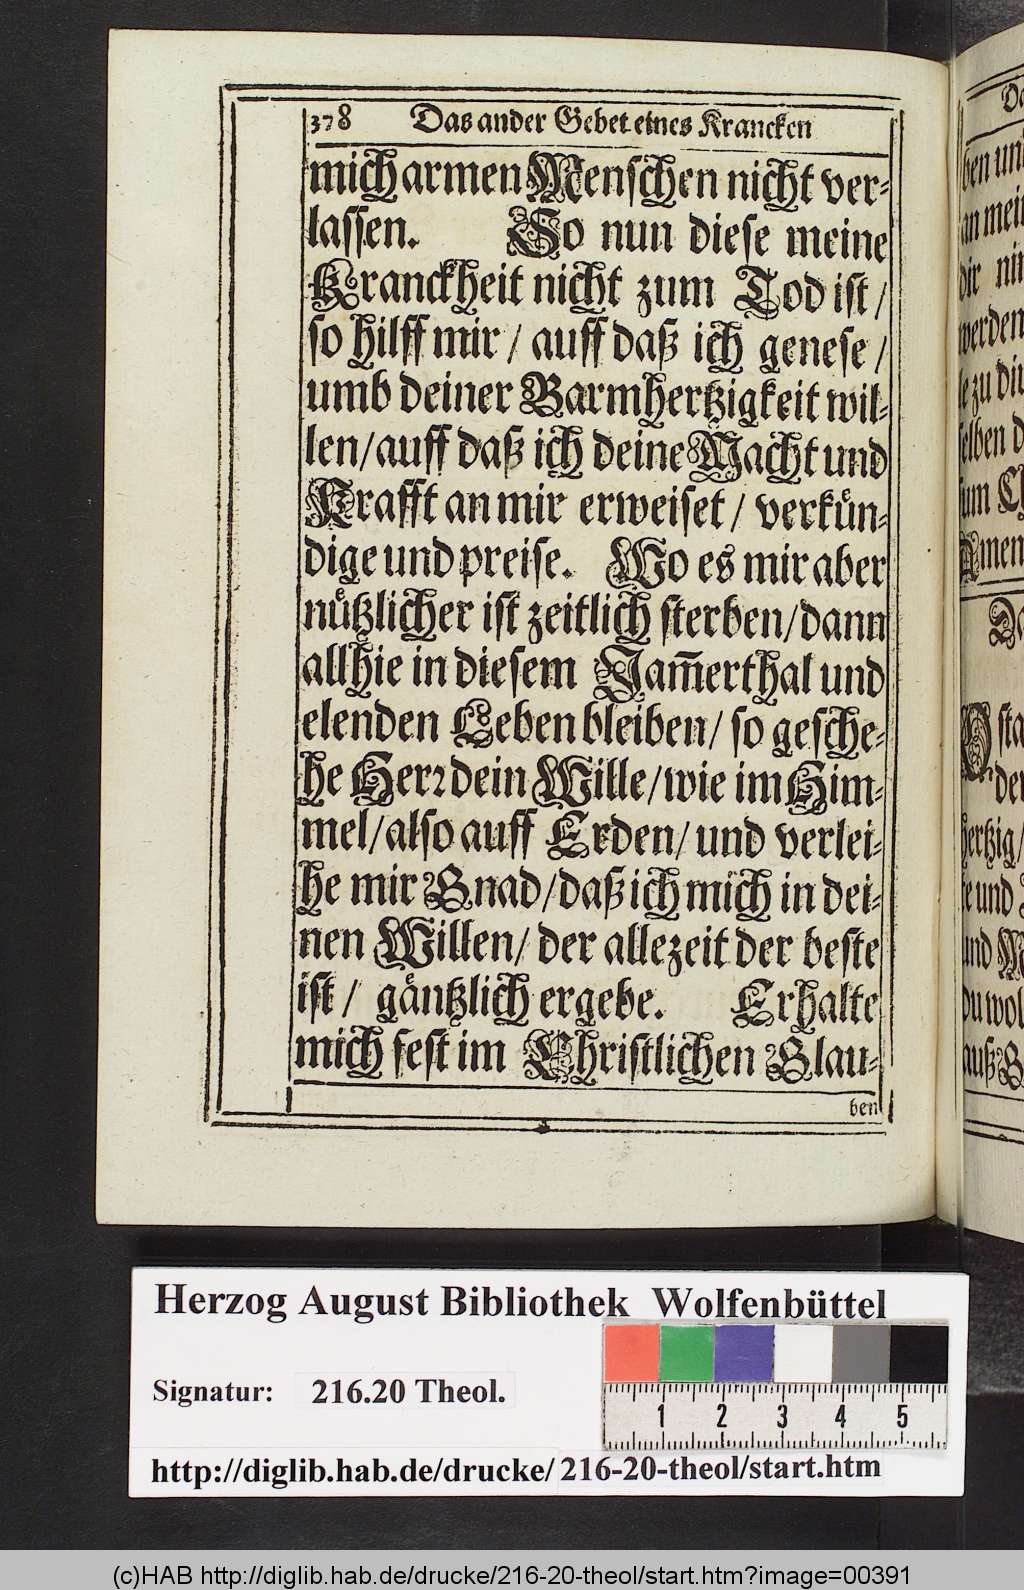 378 Das ander Gebet eines Krancken
mich armen Menschen nicht ver⸗
lassen. So nun diese meine
Kranckheit nicht zum Tod ist /
so hilff mir / auff daß ich genese /
umb deiner Barmhertzigkeit wil⸗
len / auff daß ich deine Macht und
Krafft an mir erweiset / verkuͤn⸗
dige und preise. Wo es mir aber
nuͤtzlicher ist zeitlich sterben / dann
allhie in diesem Jam̄erthal und
elenden Leben bleiben / so gesche⸗
he Herꝛ dein Wille / wie im Him⸗
mel / also auff Erden / und verlei⸗
he mir Gnad / daß ich mich in dei⸗
nen Willen / der allezeit der beste
ist / gaͤntzlich ergebe. Erhalte
mich fest im Christlichen Glau⸗
ben
Herzog August Bibliothek Wolfenbüttel
Signatur: 216.20 Theol.
1 2 3 4 5
http://diglib.hab.de/drucke/216-20-theol/start.htm
(c)HAB http://diglib.hab.de/drucke/216-20-theol/start.htm?image=00391